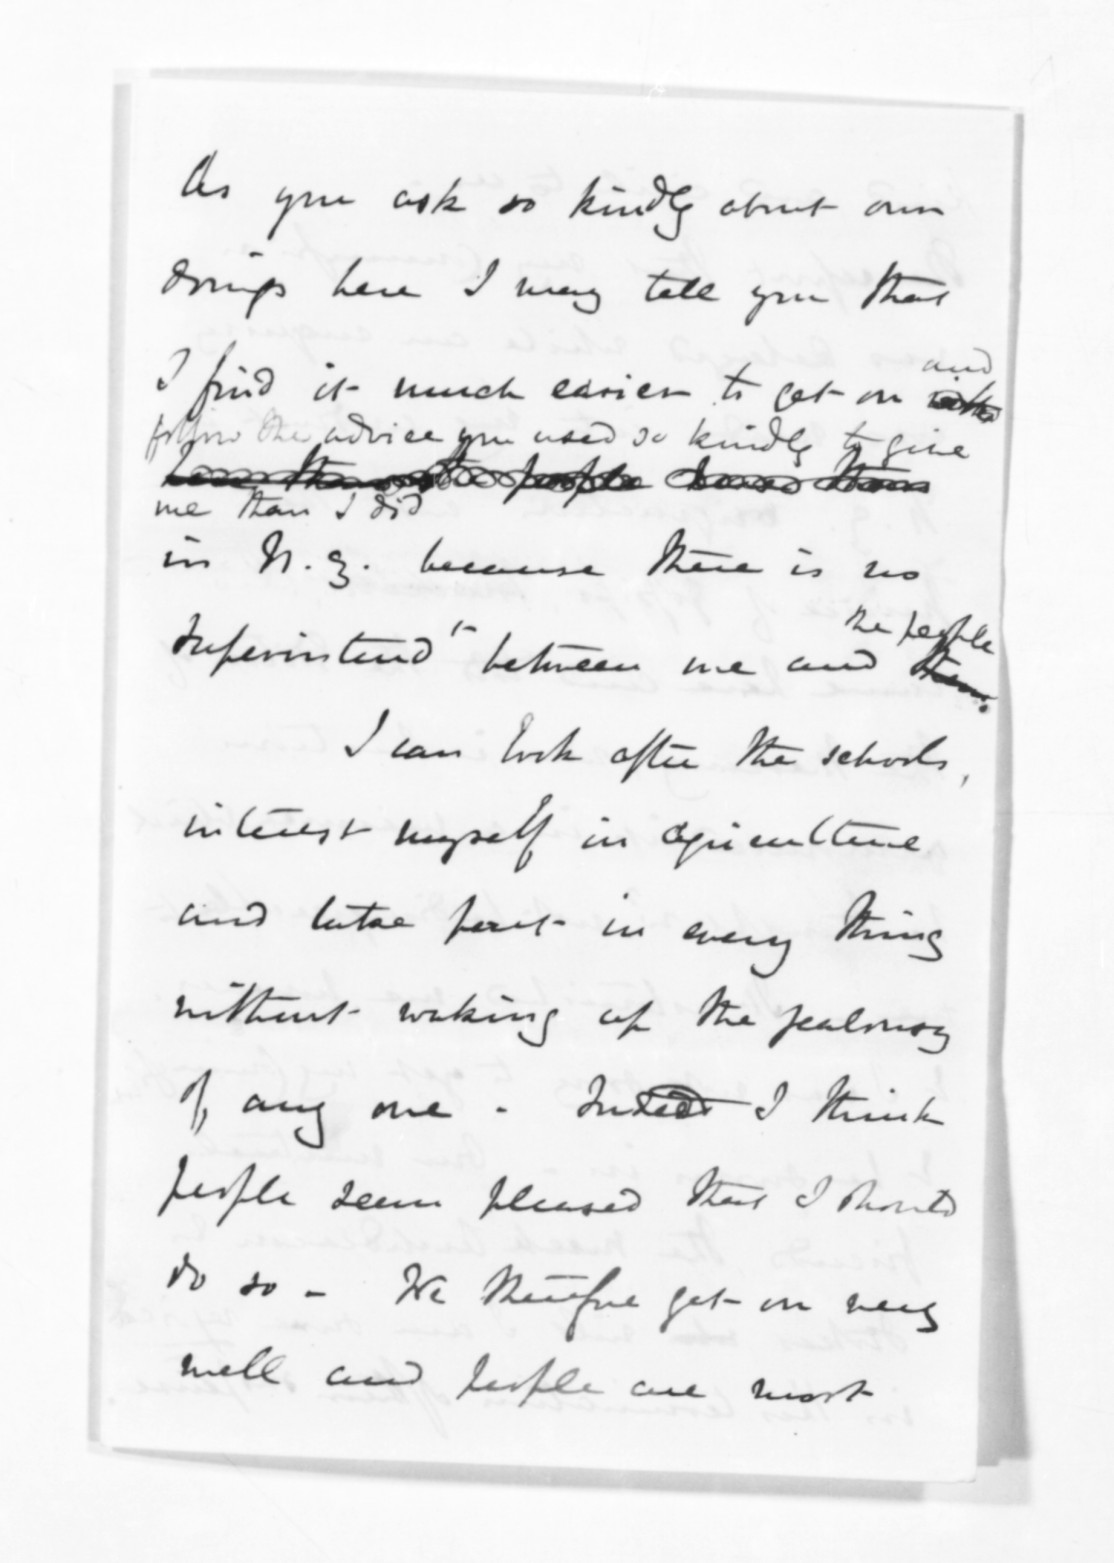 As you ask so kindly about our
doings here I may tell you that
I find it much easier to get on and
follow the advice you used so kindly to give
me than I did
in N.Z. because there is no
Superintend^t between me and the people
them.
I can look after the schools,
interest myself in agriculture
and take part in every thing
without waking up the jealousy
of any one - Indeed I think
people seem pleased that I should
do so - We therefore get on very
well and people are most